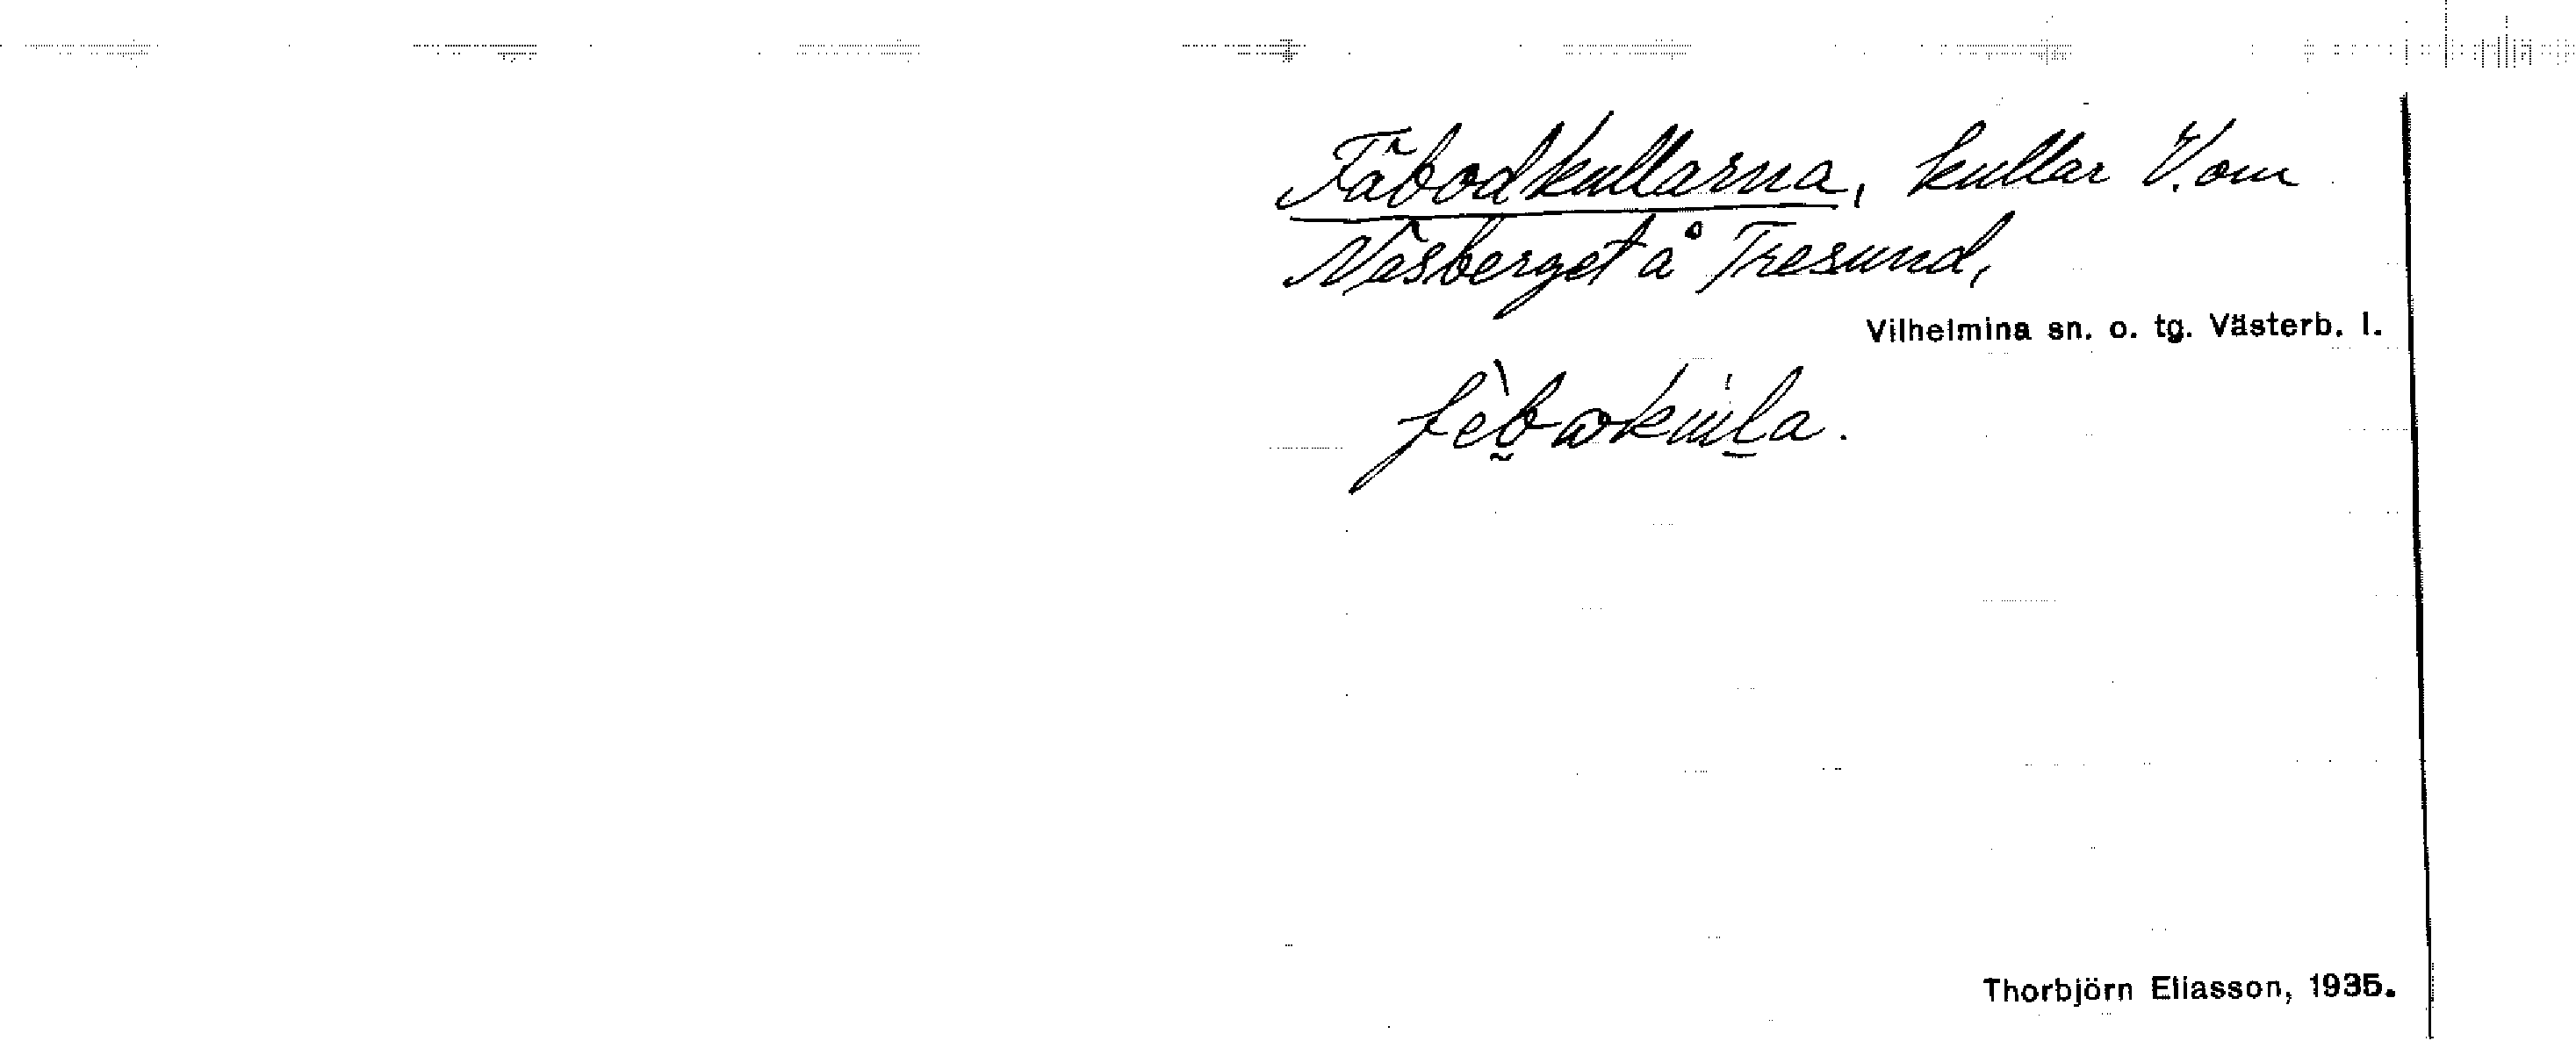 Fäbodkullarna, kullar V. om
Näsberget å Tresund,
Vilhelmina sn. o. tg. Västerb. l.
Thorbjörn Eliasson, 1935.